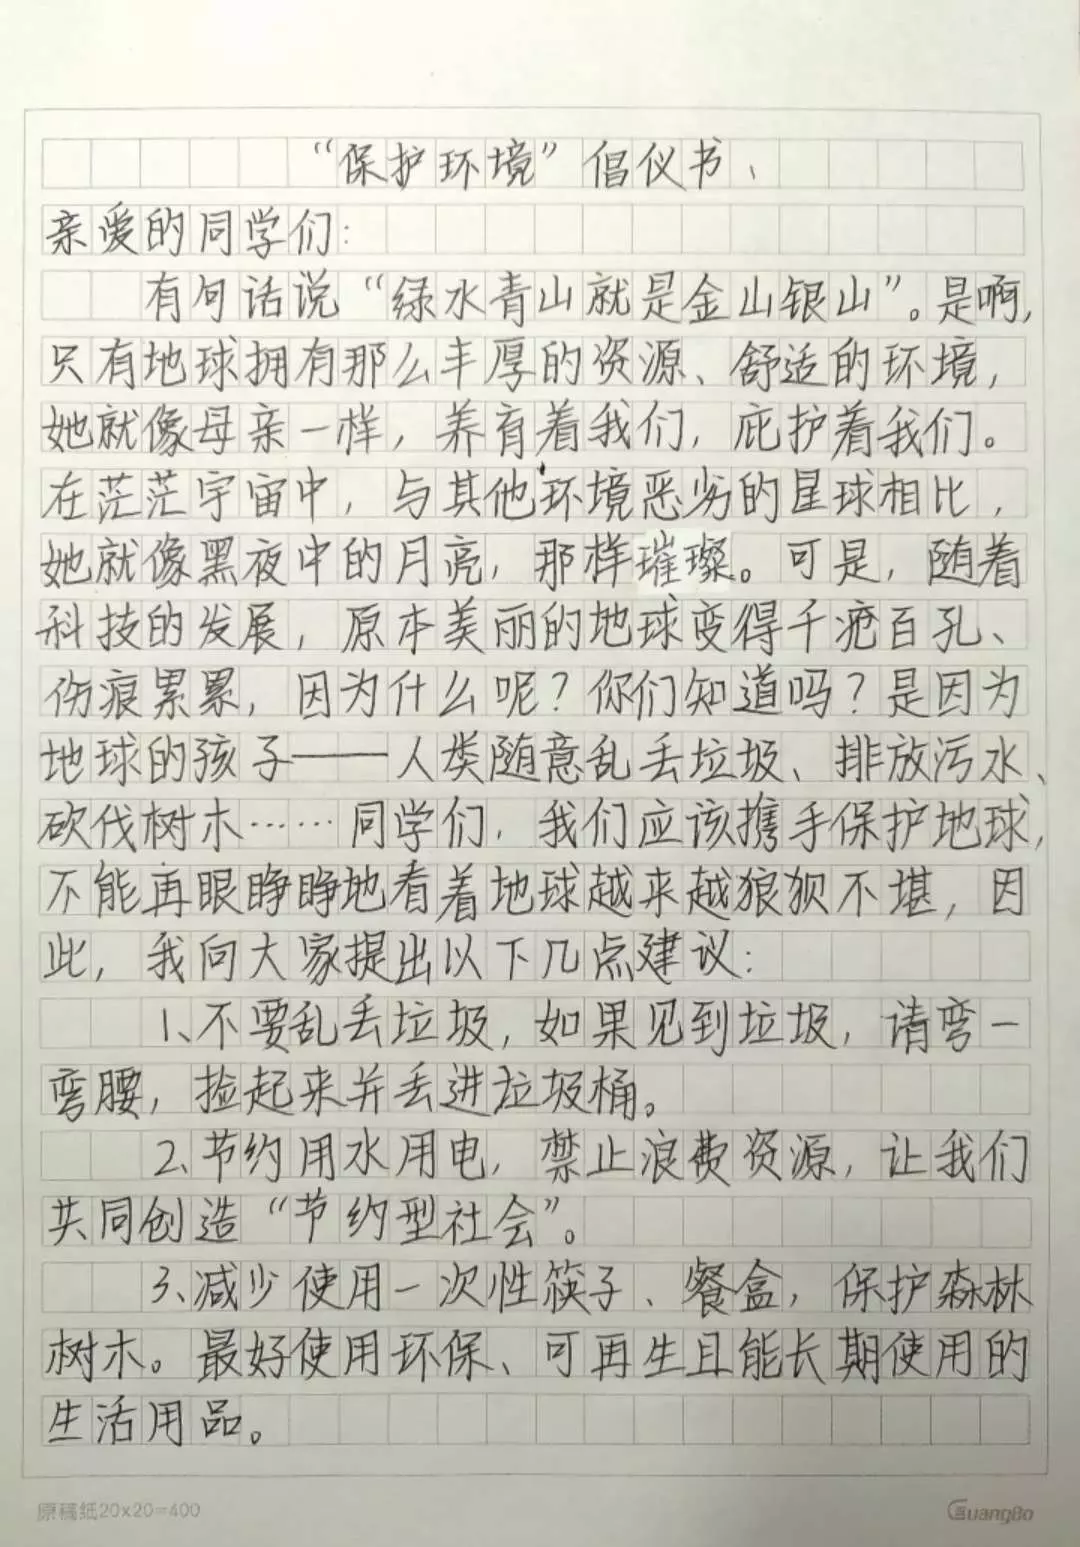 “保护环境”倡仪书、
亲爱的同学们：
有句话说“绿水青山就是金山银山”。是啊，
只有地球拥有那么丰厚的资源、舒适的环境，
她就像母亲一样，养育着我们，庇护着我们。
在茫茫宇宙中，与其他环境恶劣的星球相比，
她就像黑夜中的月亮，那样璀璨。可是，随着
科技的发展，原本美丽的地球变得千疮百孔、
伤痕累累，因为什么呢？你们知道吗？是因为
地球的孩子——人类随意乱丢垃圾、排放污水、
砍伐树木……同学们，我们应该携手保护地球，
不能再眼睁睁地看着地球越来越狼狈不堪，因
此，我向大家提出以下几点建议：
1、不要乱丢垃圾，如果见到垃圾，请弯一
弯腰，捡起来并丢进垃圾桶。
2、节约用水用电，禁止浪费资源，让我们
共同创造“节约型社会”。
3、减少使用一次性筷子、餐盒，保护森林
树木。最好使用环保、可再生且能长期使用的
生活用品。
原稿纸20x20=400
GuangBo